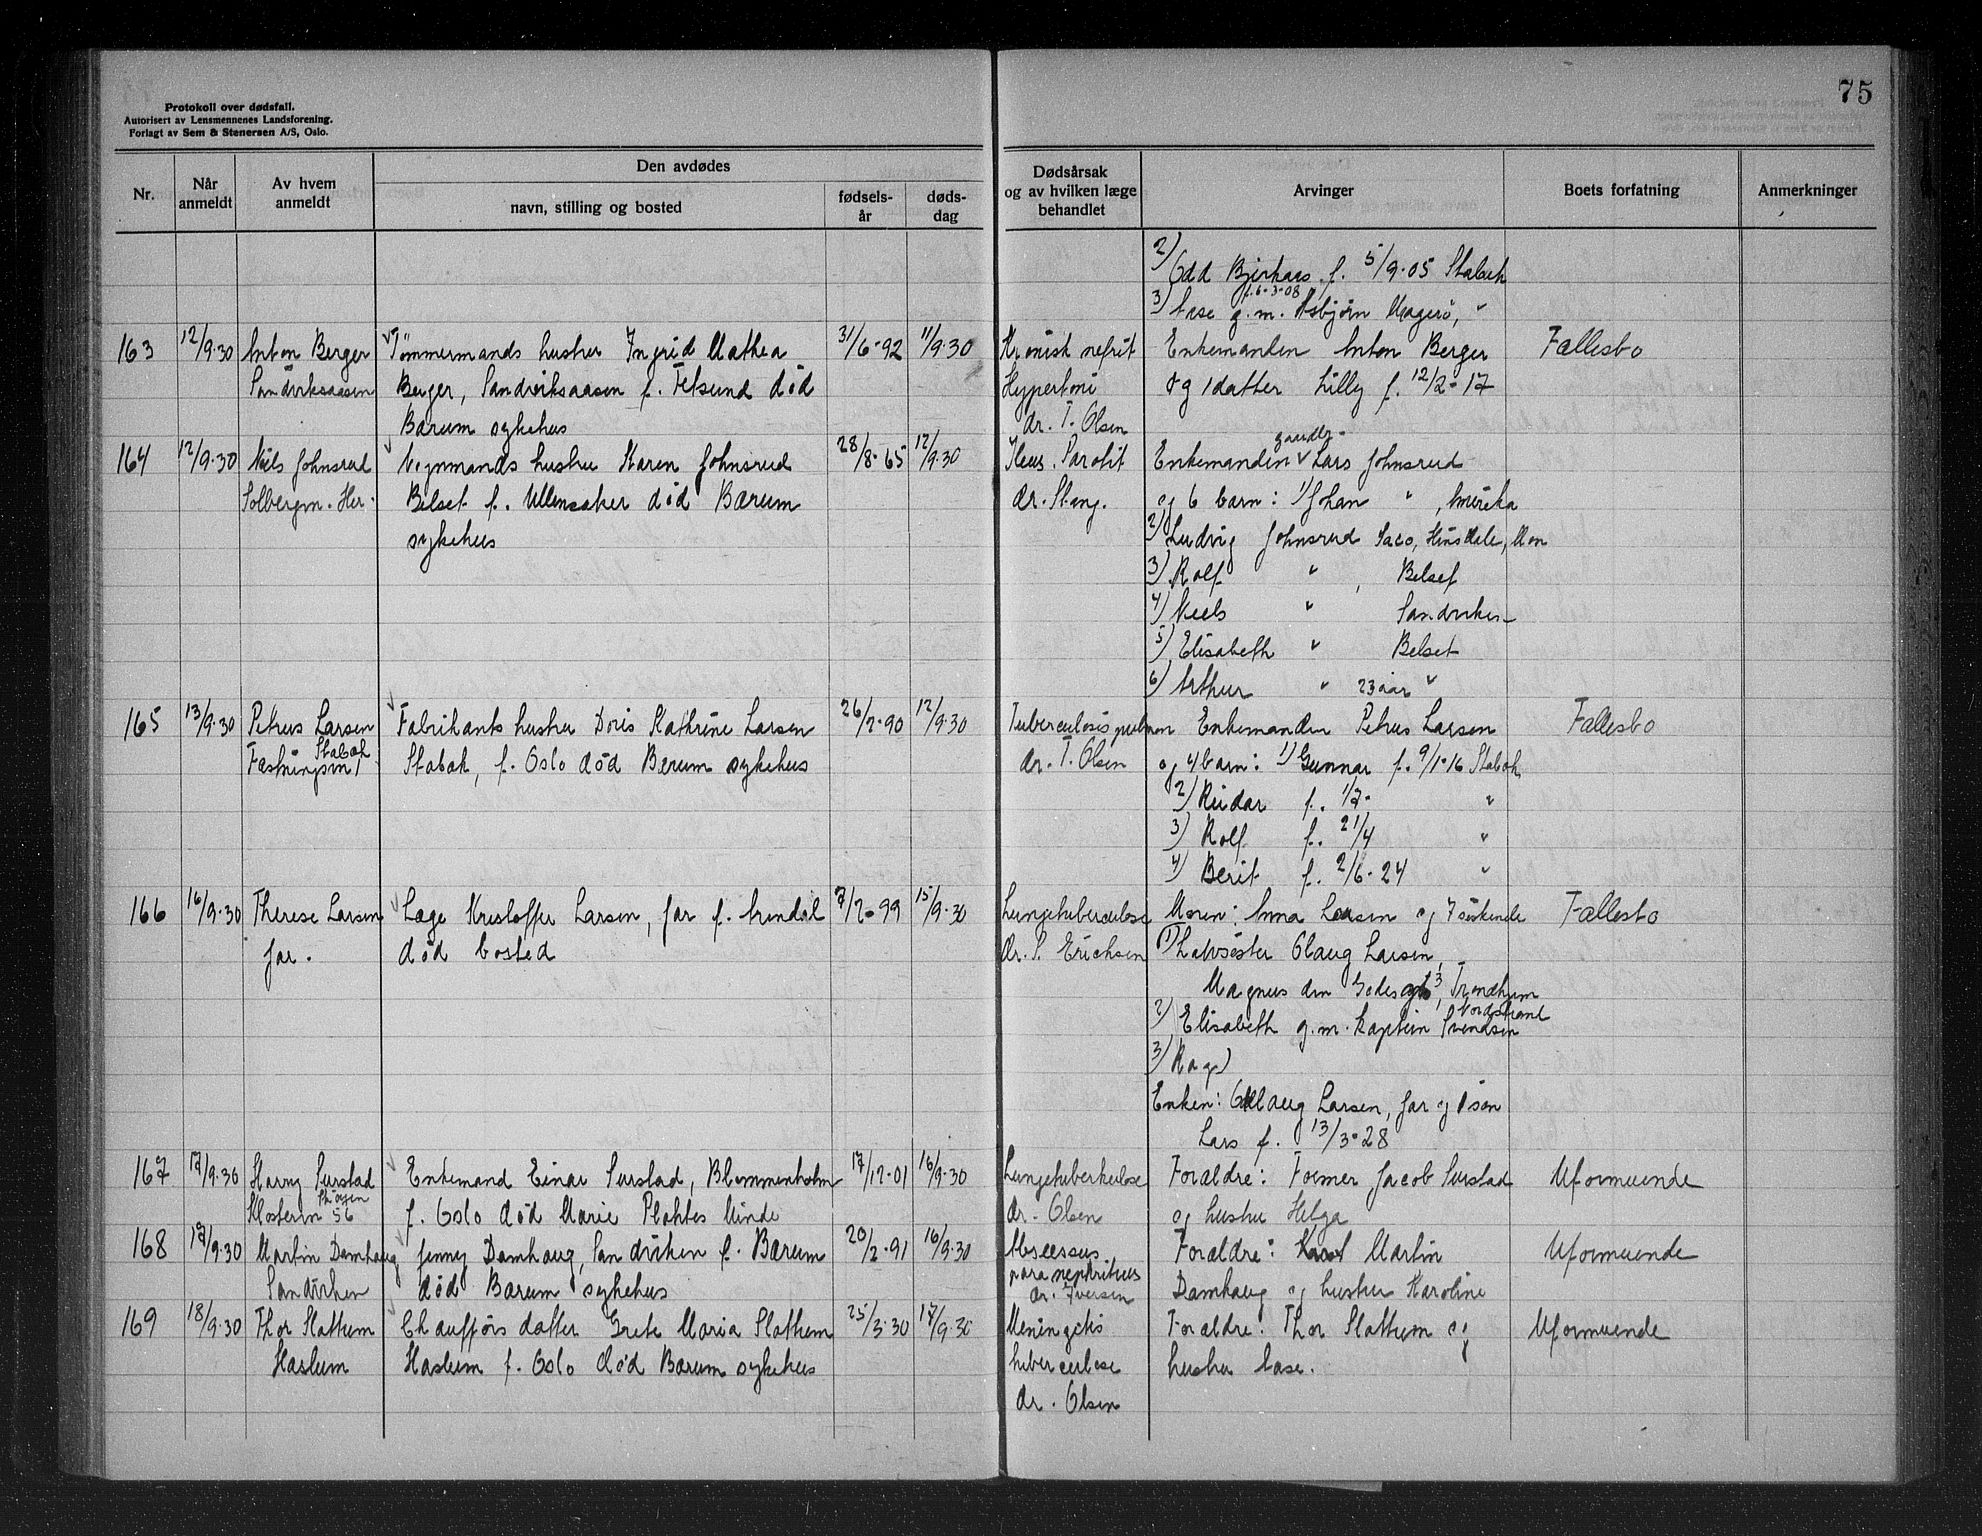 75
Protokoll over dødsfall.
Autorisert av Lensmennenes Landsforening.
Forlagt av Sem & Stenersen A/S, Oslo.
Nr.
Når anmeldt
Av hvem anmeldt
Den avdødes
navn, stilling og bosted
fødsels-år
døds-dag
Dødsårsak og av hvilken læge behandlet
Arvinger
Boets forfatning
Anmerkninger
2) Odd Bjerkaas f. 5/9-05 Stabæk
f. 6-3-08
3) Aase g.m. Asbjørn Magerö, "
163 12/9-30 Anton Berger Tömmermands hustru Ingrid Mathea 31/6-92 11/9-30 Kronisk nefrit Enkemanden Anton Berger Fællesbo
Sandviksaasen Berger, Sandviksaasen f. Fetsund død Hypertoni og 1 datter Lilly f. 12/2-17
Bærum sykehus dr. T. Olsen
164 12/9-30 Niels Johnsrud Karen Johnsrud 28/8-65 12/9-30 Ileus. Parotit Enkemanden gaardbr. Lars Johnsrud
Solbergm. Her. Belset f. Ullensaker død Bærum dr. Stang. og 6 barn: 1) Johan " , Amerika
sykehus 2) Ludvig Johnsrud Saco, Hinsdale, Mon
3) Rolf " , Belset
4) Niels " Sandviken
5) Elisabeth " Belset
6) Arthur " 23 aar "
165 13/9-30 Petrus Larsen Fabrikants hustru Doris Kathrine Larsen 26/2-90 12/9-30 Tuberculosis pulmon Enkemanden Petrus Larsen Fællesbo
Stabæk
Fæstningsm / Stabæk, f. Oslo død Bærum sykehus dr. T. Olsen og 4 barn: 1) Gunnar f. 9/1-16 Stabæk
2) Reidar f. 1/7- "
3) Rolf f. 21/4 "
4) Berit f. 2/6-24 "
166 16/9-30 Therese Larsen Læge Kristoffer Larsen, Jar f. Arendal 7/2-99 15/9-30 Lungetuberculose Moren: Anna Larsen og 7 söskende Fællesbo
Jar. død bosted dr. S. Erichsen 1) Olaug Larsen,
Magnus den Godes gt 3, Trondhjem
Nordstrand
2) Elisabeth g.m. kaptein Svendsen
3)
Enken: Larsen, Jar og 1 søn
Lars f. 13/3-28
167 17/9-30 Harry Surstad Enkemand Einar Surstad, Blommenholm 17/12-01 16/9-30 Lungetuberkulose Forældre: Former Jacob Surstad Uformuende
Klosterm 56 f. Oslo død Marie Plahtes Minde dr. Olsen og hustru Helga
168 17/9-30 Martin Damhaug Jenny Damhaug, Sandviken f. Bærum 20/2-91 16/9-30 Abscessus Forældre: Martin Uformuende
Sandviken død Bærum sykehus para nephriticus Damhaug og hustru Karoline
dr. Iversen
169 18/9-30 Thor Slattum Chaufførs datter Grete Maria Slattum 25/3-30 17/9-30 Meningitis Forældre: Thor Slattum og Uformuende
Haslum Haslum f. Oslo død Bærum sykehus tuberculose hustru Aase.
dr. Olsen